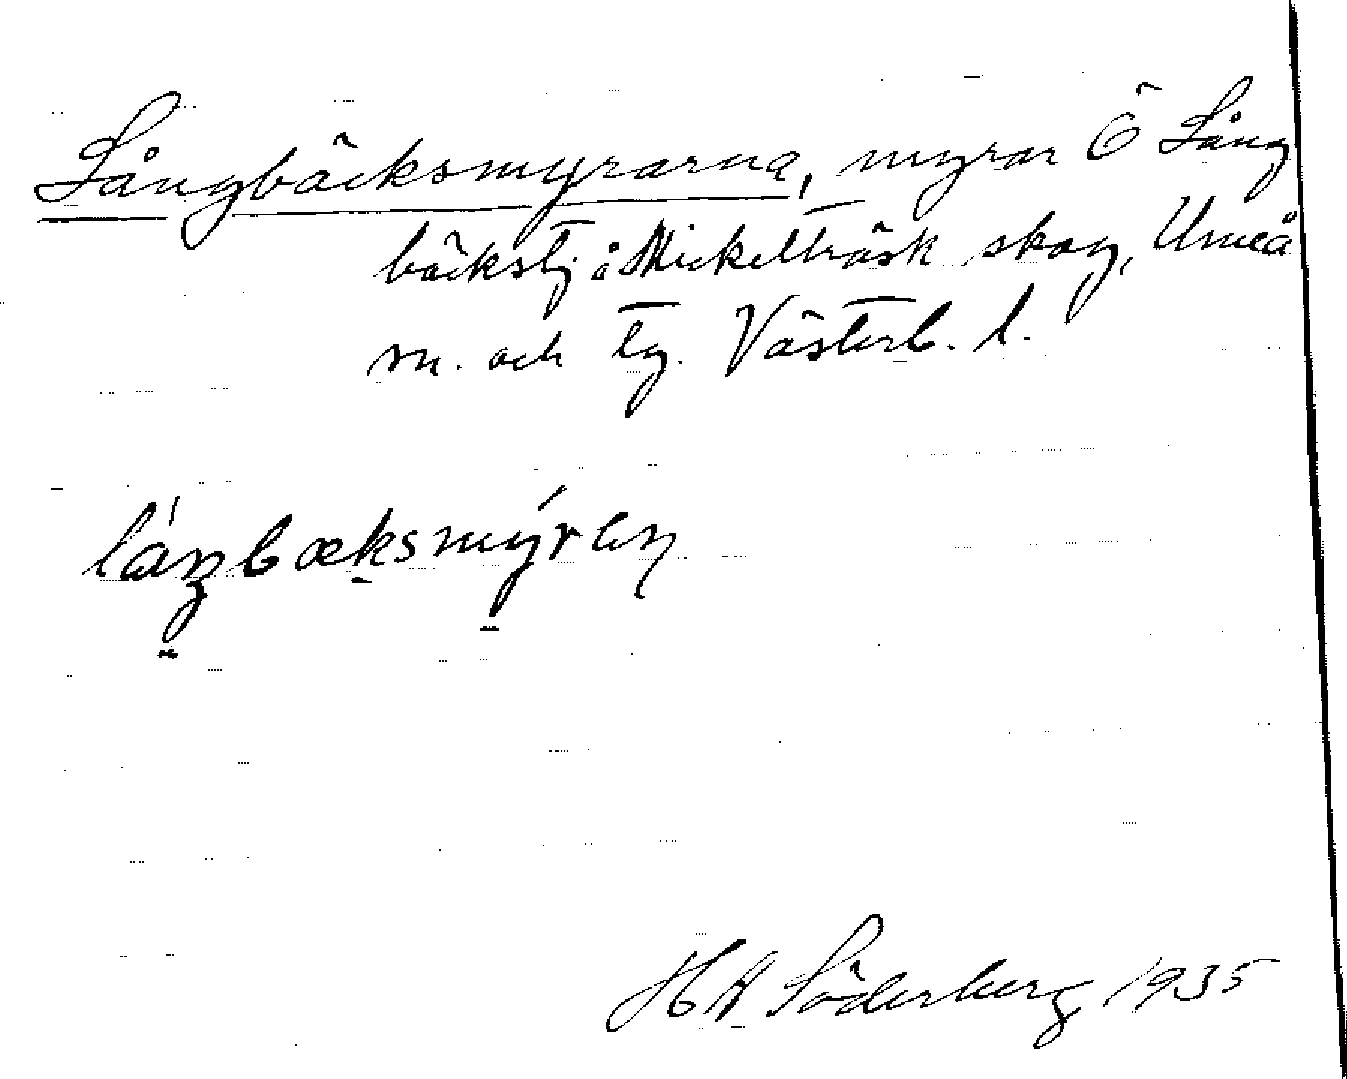 Långbäcksmyrarna, myrar Ö Lång
bäckstj å Mickelträsk skog, Umeå
sn. och tg. Västerb. l.
H A Söderberg 1935